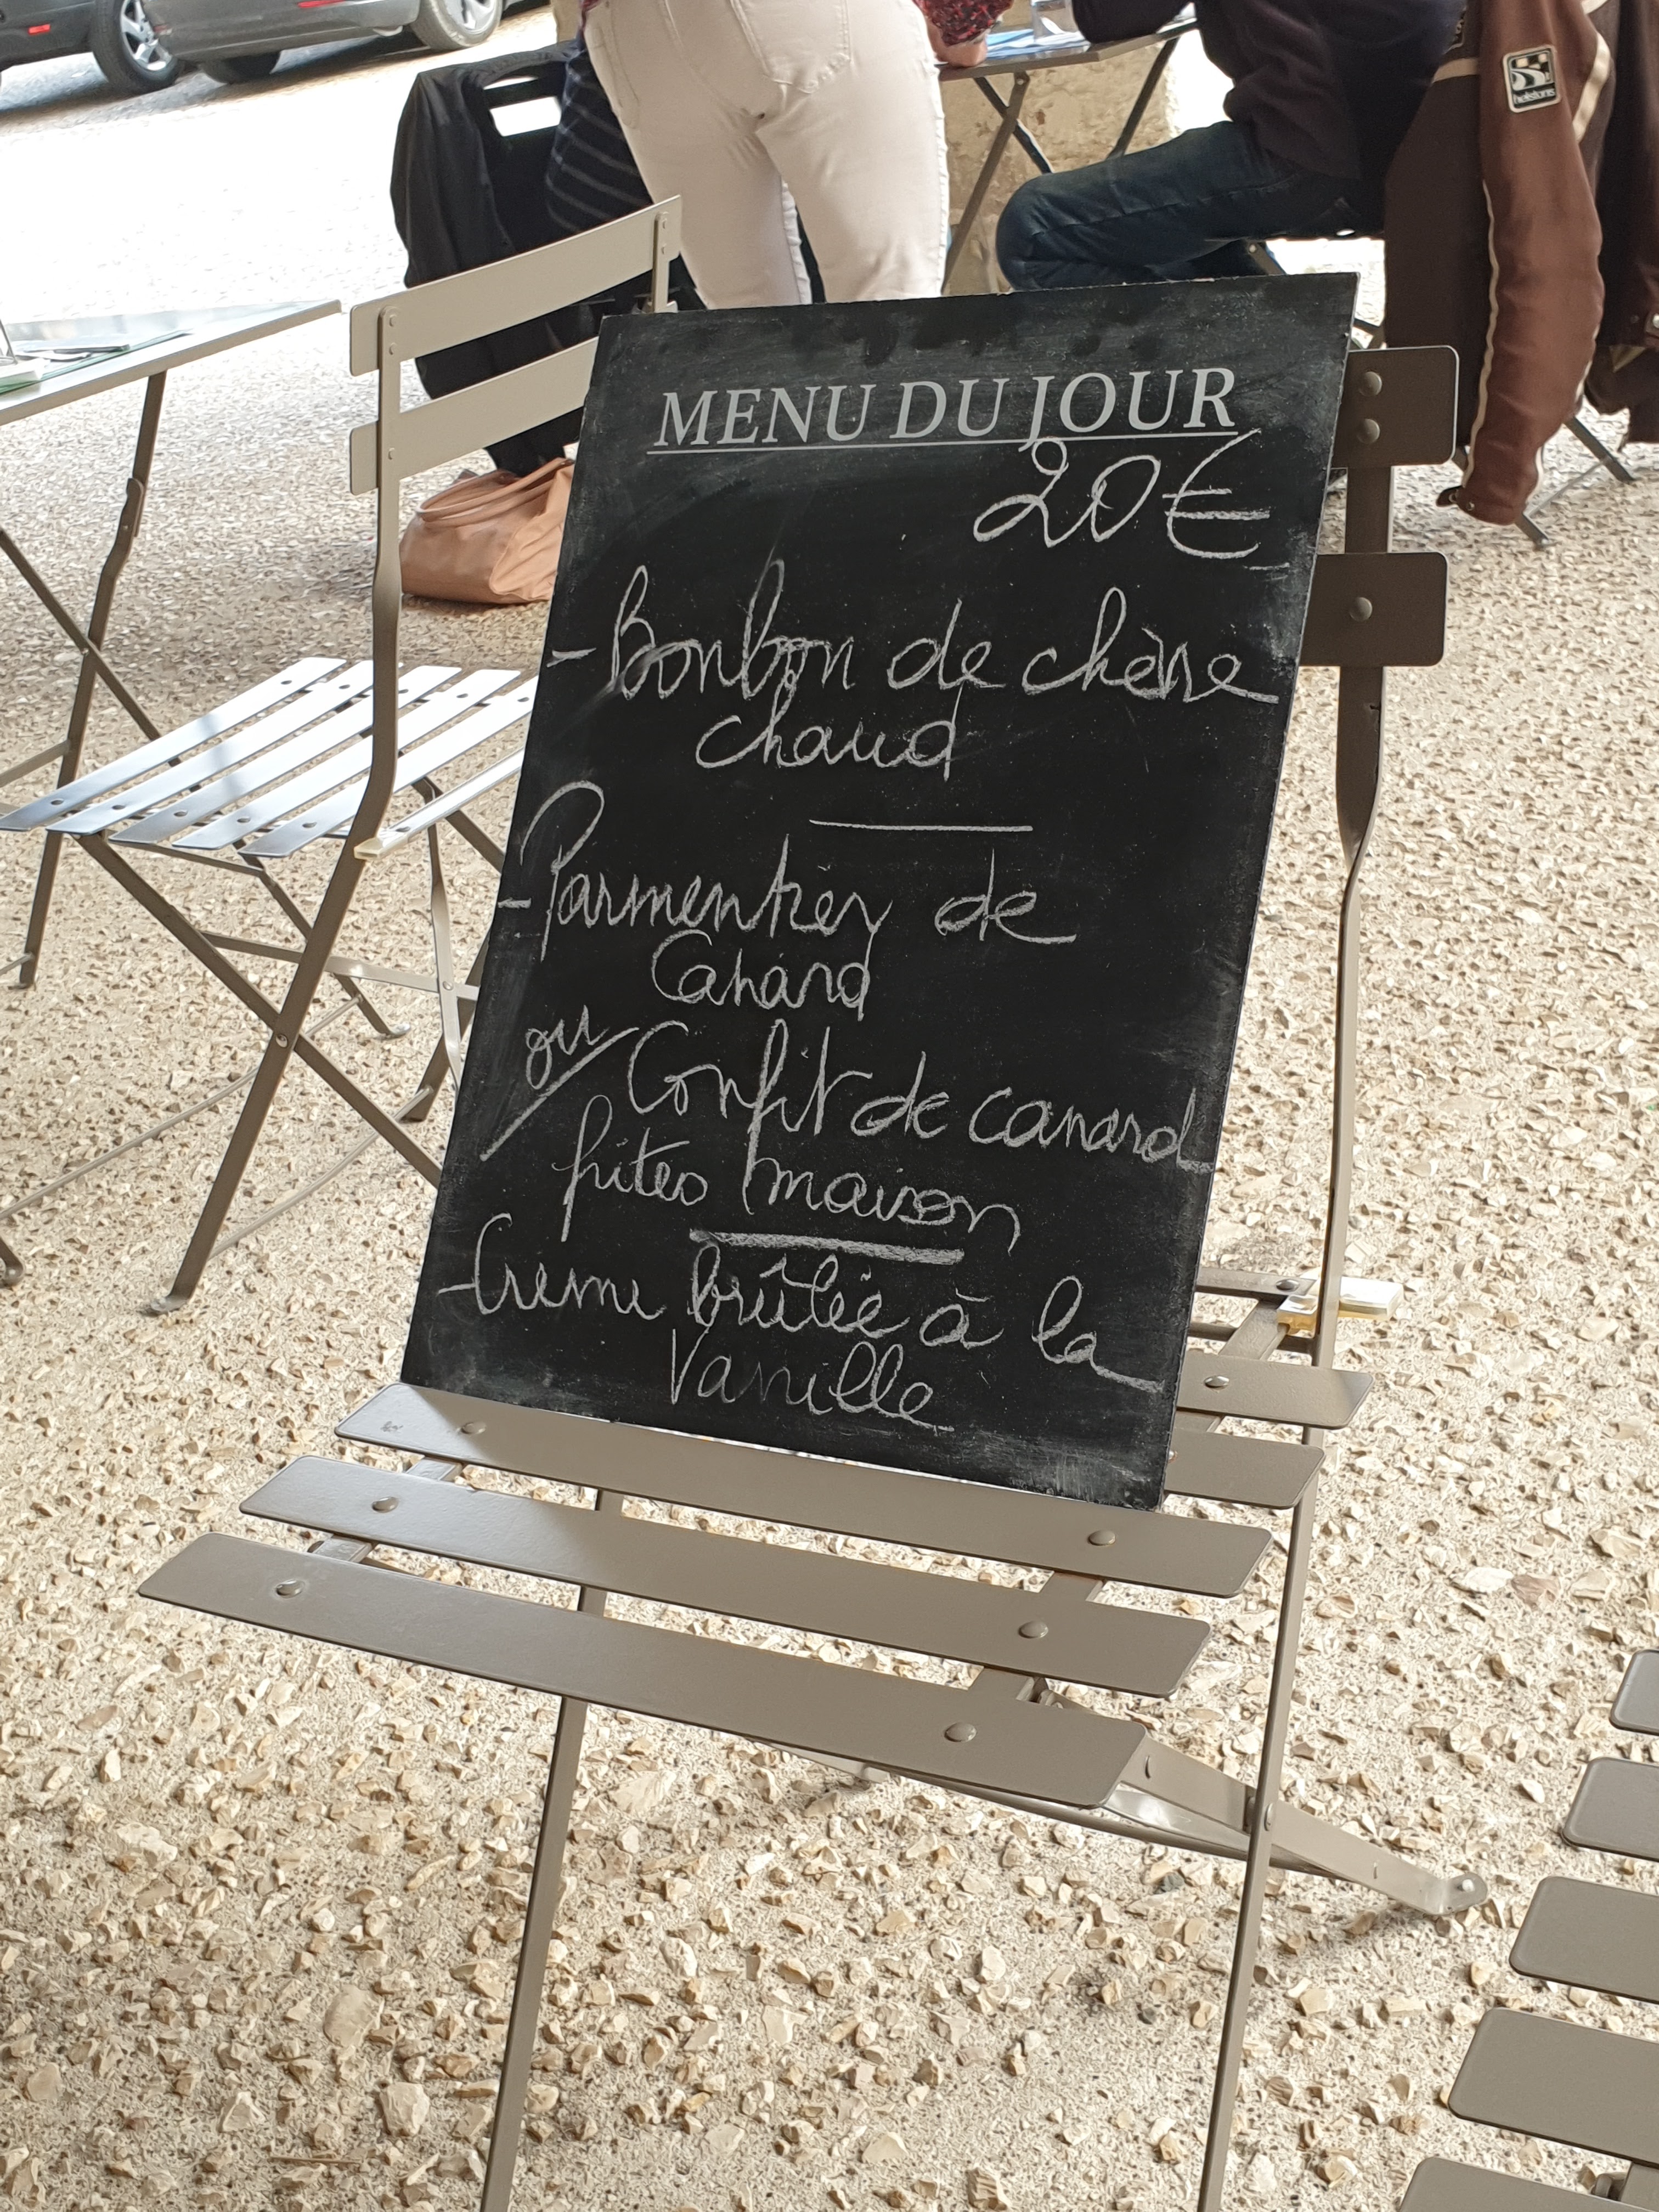 helstons
MENU DU JOUR
20€
- Bonbon de chèvre
chaud
- Parmentier de
Canard
ou Confit de canard
frites maison
- Creme brûlée à la
Vanille